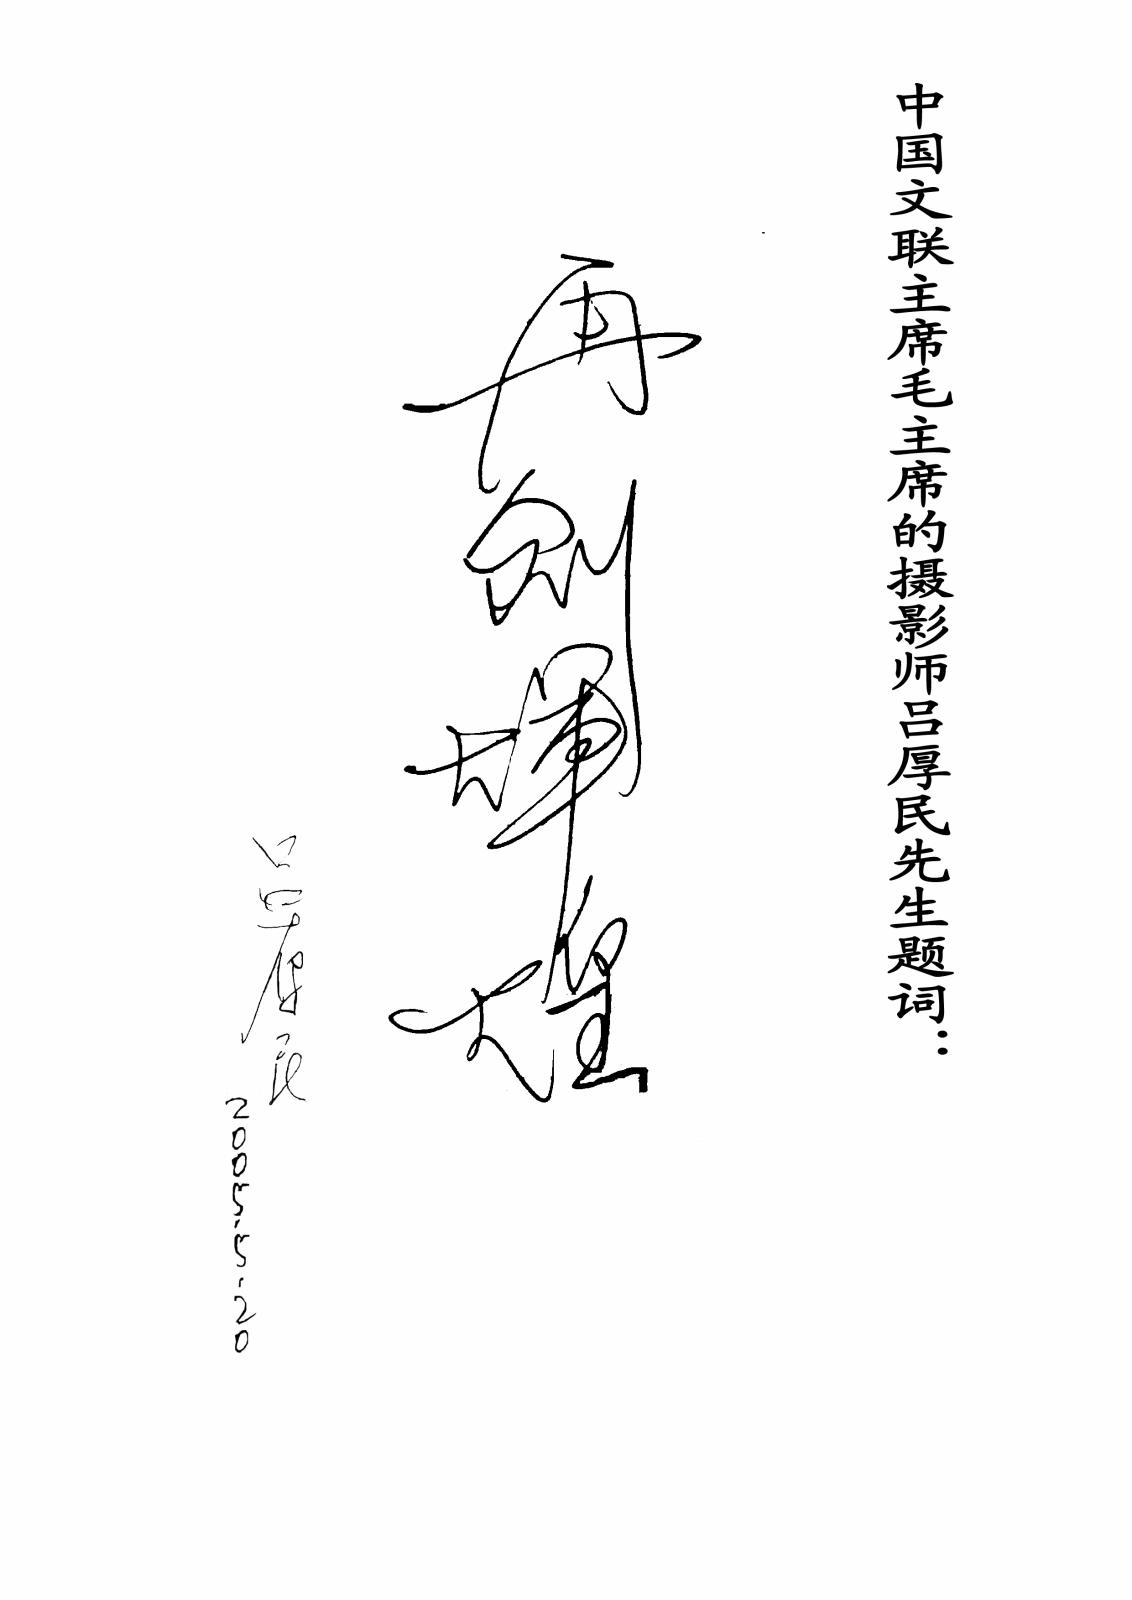 中国文联主席毛主席的摄影师吕厚民先生题词：
再创辉煌
吕厚民
2005.5.20